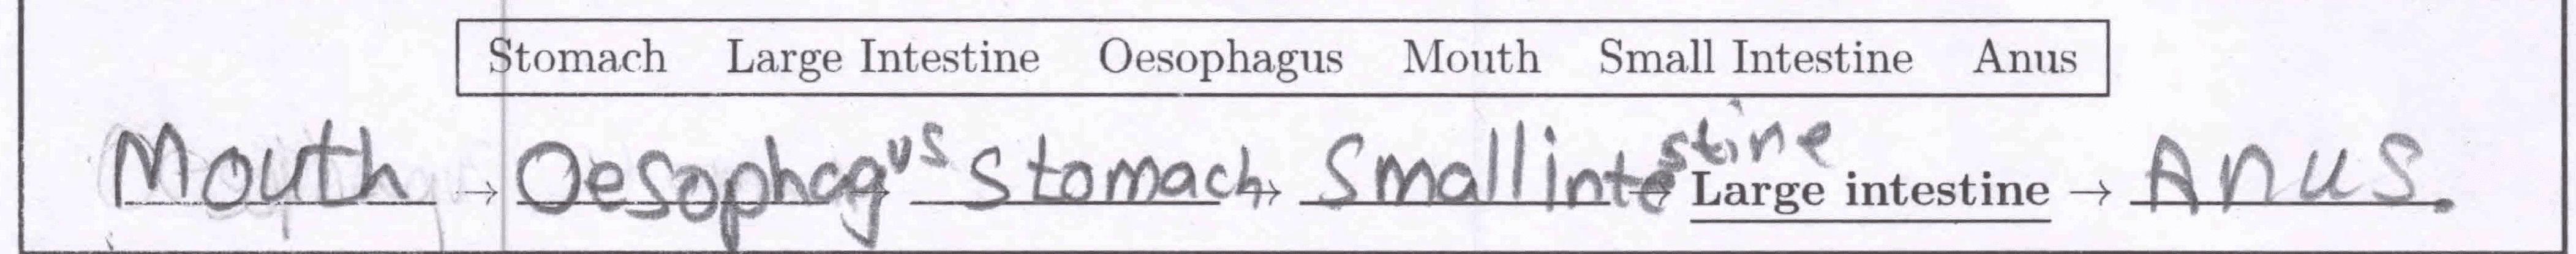 Stomach Large Intestine Oesophagus Mouth Small Intestine Anus
Mouth → Oesophagus → Stomach → Small intestine → Large intestine → Anus.